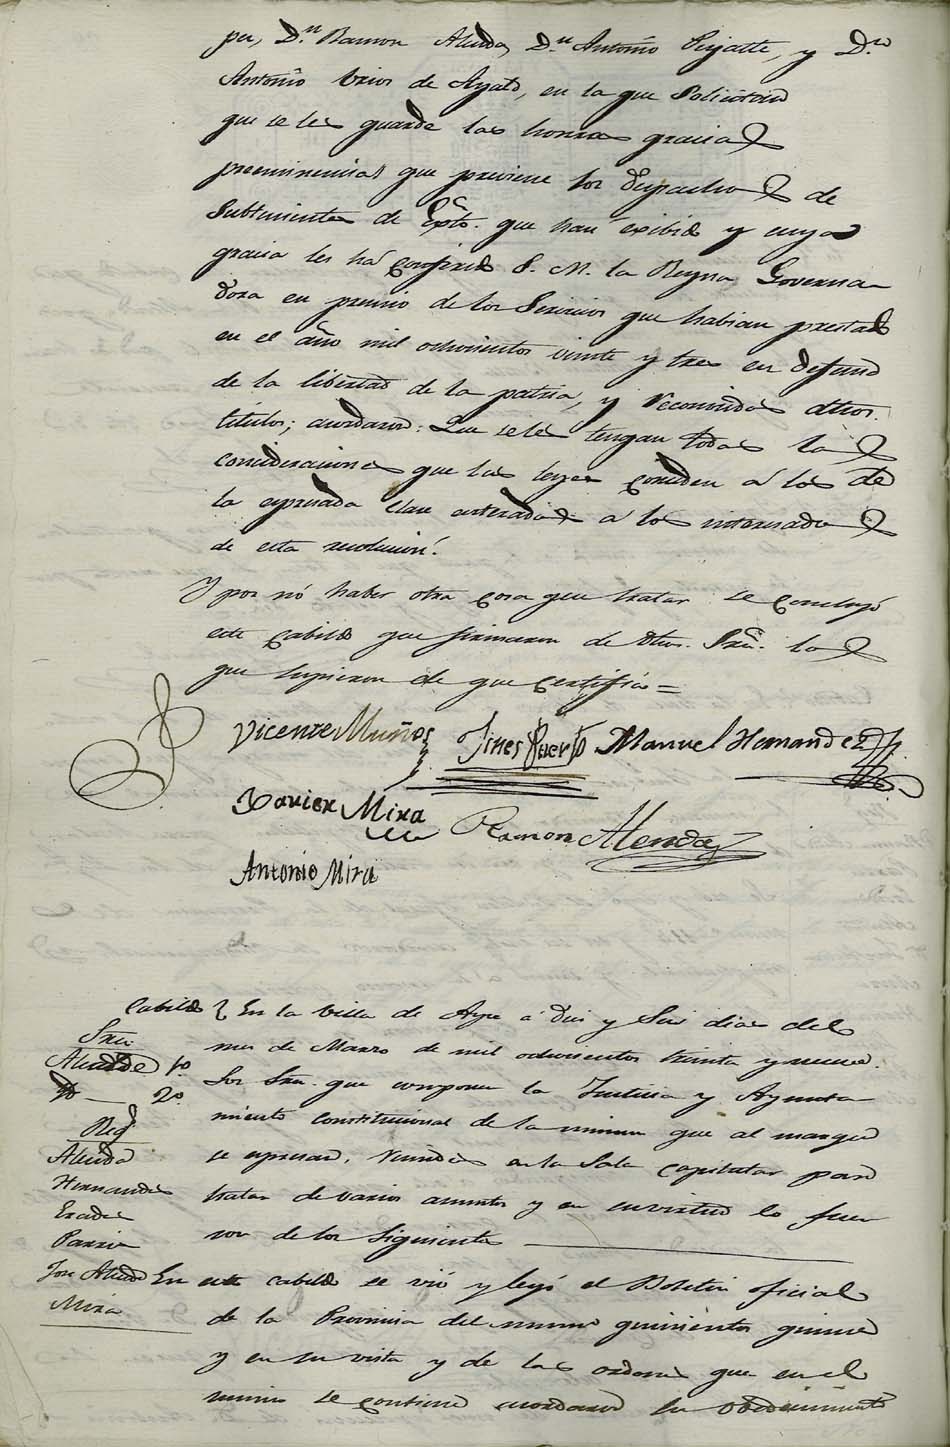 per, D.n Ramon Alenda, D.n Antonio Pujalte, y D.n
Antonio Brios de Ayala, en la que Solicitan
que se les guarde las honras gracias
preeminencias que previene los Despachos de
Subtenientes de Exto. que han exibido y cuya
gracia les há conferido S. M. la Reyna Governa-
dora en premio de los Servicios que habian prestado
en el año mil ochocientos veinte y tres en defensa
de la libertad de la patria, y reconocidos dhos.
titulos; acordaron: Que se les tengan todas las
consideraciones que las leyes conceden á los de
la espresada clase enterados á los interesados
de esta resolucion.
Y por nó haber otra cosa que tratar se concluyó
este cabildo que firmaron de dhos. Sres. los
que supieron de que certifico=
Vicente Muños Jines Puerto Manuel Hernandez
Xavier Mira Ramon Alenda
Antonio Mira
Cabildo En la Villa de Aspe á Diez y Seis dias del
mes de Marzo de mil ochocientos treinta y nueve.
Los Sres. que componen la Justicia y Ayunta-
miento constitucional de la misma que al margen
se espresan, reunidos en la Sala capitular para
tratar de varios asuntos y en su virtud lo fue-
ron de los siguientes
Sres.
Alcalde 1o
Yd 2o.
Reg.
Alenda
Hernandes
Erades
Pavia
Jose Alenda
Mira
En este cabildo se vió y leyó el Boletin oficial
de la Provincia del numo quinientos quince
y en su vista y de las ordenes que en el
mismo se contiene acordaron su obedecimiento